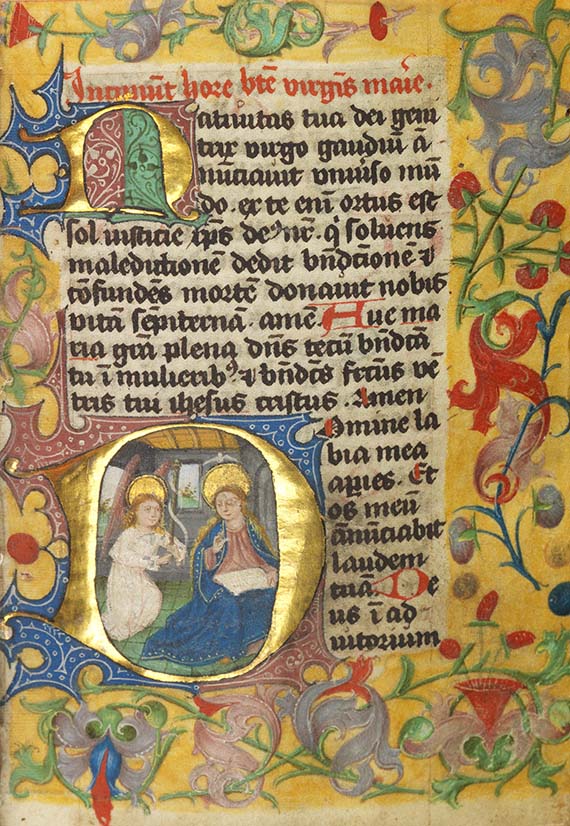 Incipiu͂t hore bt͂e virgi͂s marie.
Nativitas tua dei geni
trix virgo gaudiu͂ a͂
nu͂ciavit vniv͂so mu͂
do. ex te eni͂ ortus est
sol iusticie xp͂s deꝰ nr͂. q͂ solvens
maledictione͂ dedit bn͂dictione͂ ⁊
co͂funde͂s morte͂ donavit nobis
vita͂ se͂piterna͂. ame͂. Aue ma
ria gra͂ plena dn͂s tecu͂ bn͂dc͂a
tu i͂ mulieribꝰ ⁊ bn͂dc͂s fc͂tus ve͂
tris tui ihesus cristus. Amen
Domine la
bia mea
aperies. Et
os meu͂
a͂nu͂ciabit
laudem
tua͂. De
us i͂ ad
iutorium